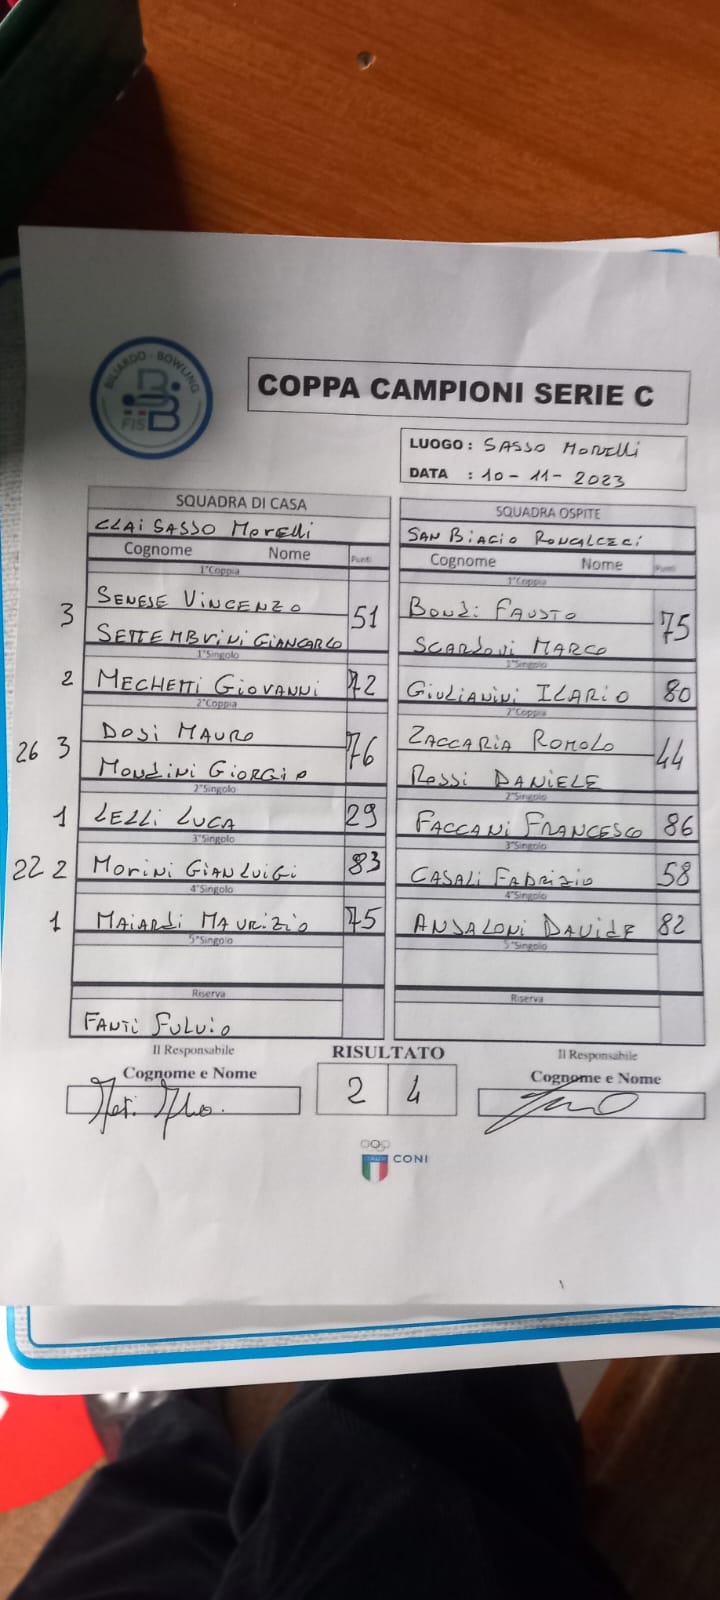 BILIARDO - BOWLING
FISBB
COPPA CAMPIONI SERIE C
LUOGO : SASSO MORELLI
DATA : 10-11-2023
SQUADRA DI CASA SQUADRA OSPITE
CLAI SASSO MORELLI SAN BIAGIO RONCALCECI
Cognome Nome Punti Cognome Nome Punti
1°Coppia 1°Coppia
3 SENESE VINCENZO 51 BONDI FAUSTO 75
SETTEMBRINI GIANCARLO SCARDOVI MARCO
1°Singolo 1°Singolo
2 MECHETTI GIOVANNI 72 GIULIANINI ILARIO 80
2°Coppia 2°Coppia
26 3 DOSI MAURO 76 ZACCARIA ROMOLO 44
MONDINI GIORGIO ROSSI DANIELE
2°Singolo 2°Singolo
1 LELLI LUCA 29 FACCANI FRANCESCO 86
3°Singolo 3°Singolo
22 2 MORINI GIANLUIGI 83 CASALI FABRIZIO 58
4°Singolo 4°Singolo
1 MAIARDI MAURIZIO 75 ANSALONI DAVIDE 82
5°Singolo 5°Singolo
Riserva Riserva
FANTI FULVIO
Il Responsabile RISULTATO Il Responsabile
Cognome e Nome 2 4 Cognome e Nome
ITALIA CONI